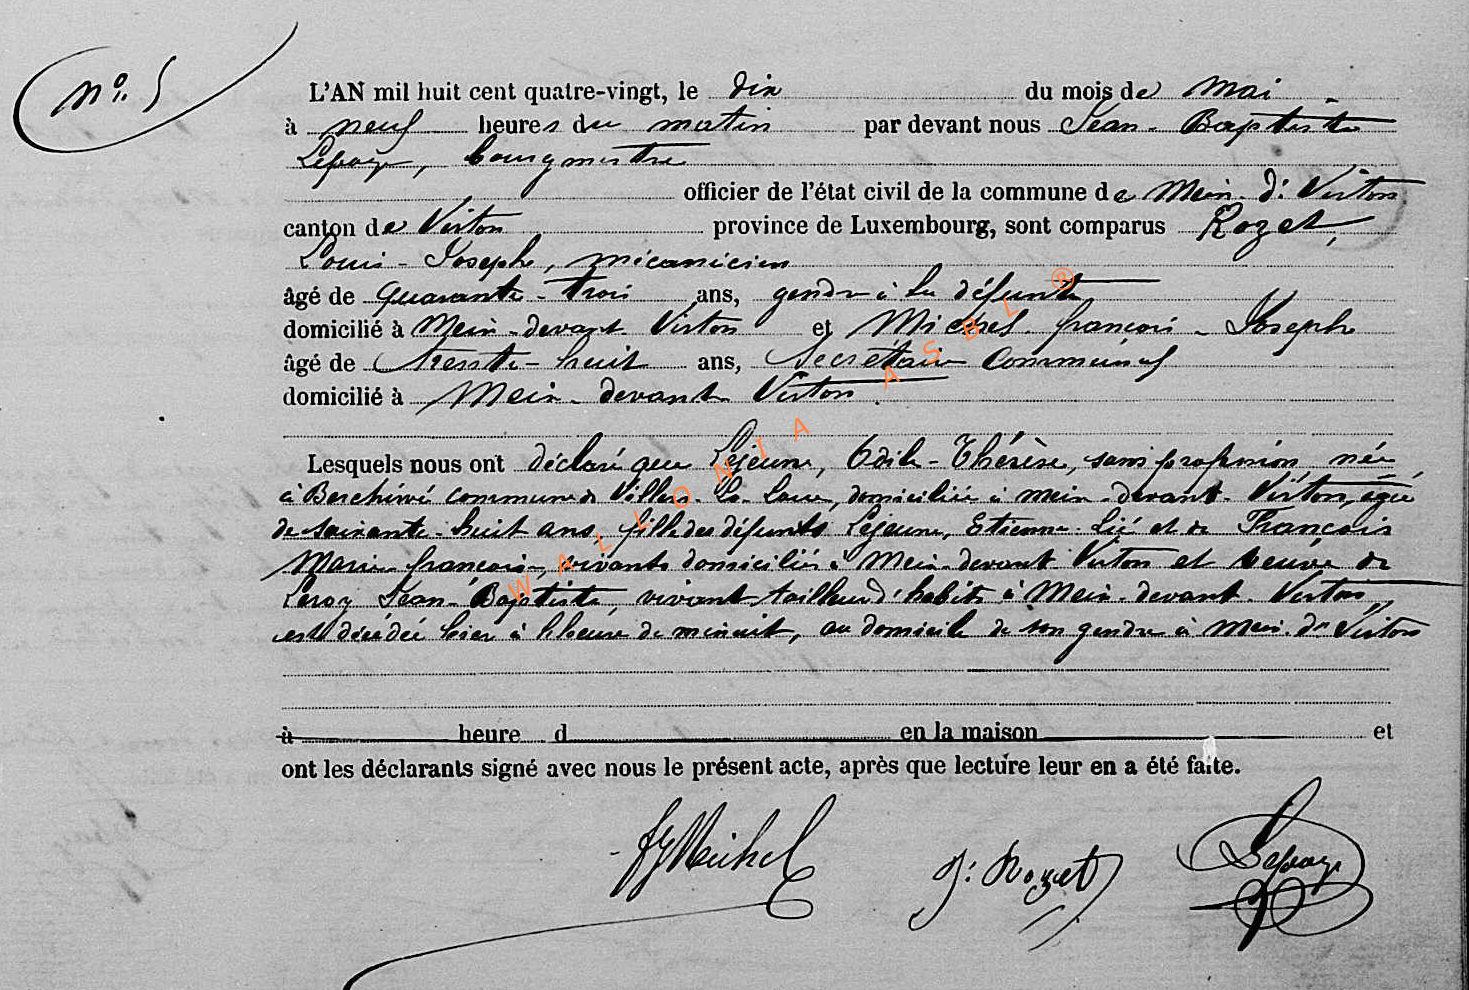 n° 5
L'AN mil huit cent quatre-vingt, le dix du mois de mai
à neuf heures du matin par devant nous Jean-Baptiste
Lepage, bourgmestre
officier de l'état civil de la commune de Meix-dt Virton
canton de Virton province de Luxembourg, sont comparus Rozet,
Louis-Joseph, mécanicien
âgé de quarante-trois ans, gendre à la défunte
domicilié à Meix-devant Virton et Michel françois-Joseph
âgé de trente-huit ans, Secrétaire communal
domicilié à Meix-devant Virton.
Lesquels nous ont déclaré que Lejeune, Odile-Thérèse, sans profession, née
à Berchiwé commune de Villers-la-Loue, domiciliée à Meix-devant-Virton, âgée
de soixante-huit ans, fille des défunts Lejeune, Etienne et de François
Marie françoise, vivants domiciliés à Meix-devant-Virton et veuve de
Leroy Jean-Baptiste, vivant tailleur d'habits à Meix-devant-Virton,
est décédée hier à l'heure de minuit, au domicile de son gendre à Meix-dt Virton
à heure d en la maison et
ont les déclarants signé avec nous le présent acte, après que lecture leur en a été faite.
fJMichel J: Rozet Lepage
WALLONIA ASBL ®